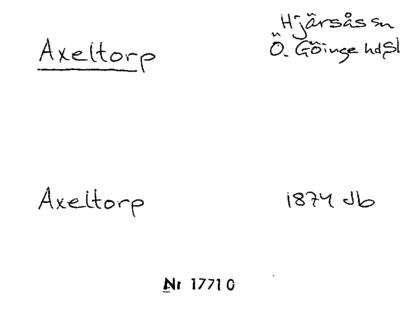 Axeltorp
Hjärsås sn
Ö. Göinge hd, Sk
Axeltorp
1874 db
Nr 17710